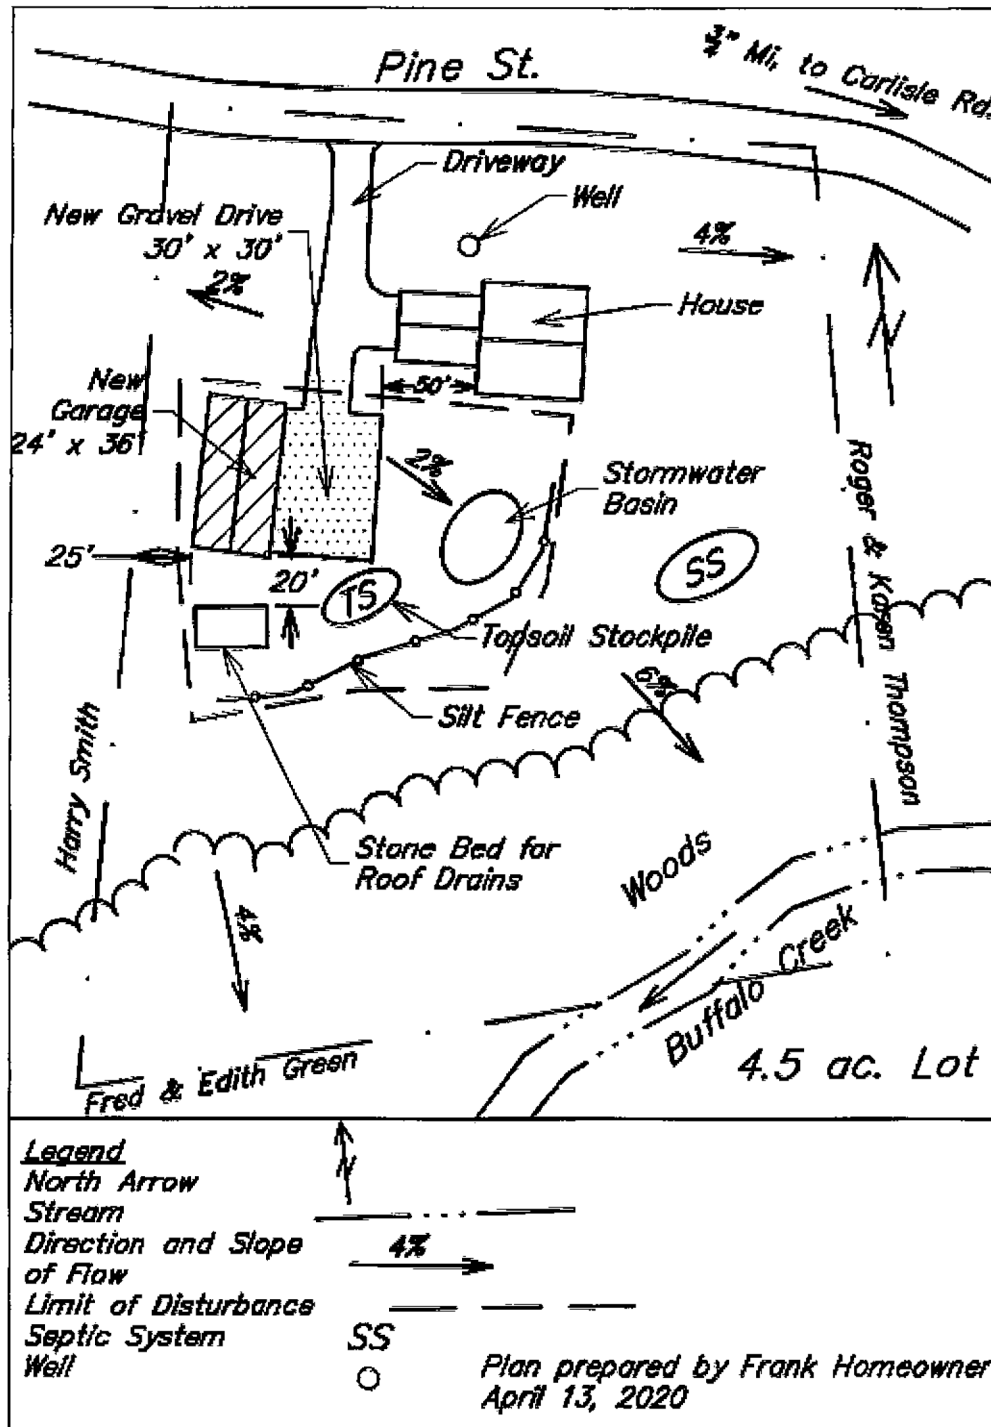 Pine St.
3/4" Mi, to Carlisle Rd.
Driveway
Well
New Gravel Drive
30' x 30'
2%
4%
House
N
New
Garage
24' x 36'
50'
2%
Stormwater
Basin
25'
20'
TS
SS
Topsoil Stockpile
Silt Fence
6%
Roger & Karen Thompson
Harry Smith
Stone Bed for
Roof Drains
4%
Woods
Buffalo Creek
Fred & Edith Green
4.5 ac. Lot
Legend
North Arrow
N
Stream
Direction and Slope
of Flow
4%
Limit of Disturbance
Septic System SS
Well
Plan prepared by Frank Homeowner
April 13, 2020